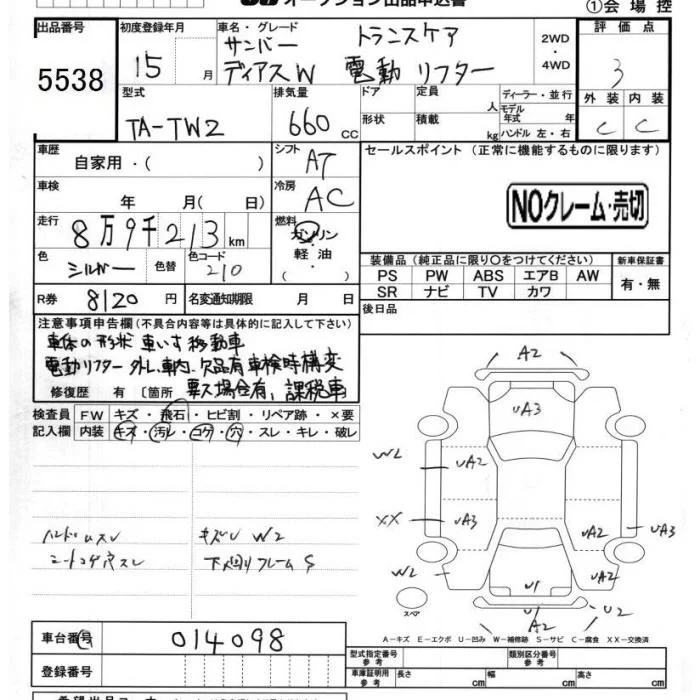 オークション出品申込書
①会場控
出品番号
5538
初度登録年月
15 月
車名・グレード
サンバー トランスケア
ディアスW 電動リフター
2WD
・
4WD
評価点
3
外装 内装
C C
型式
TA-TW2
排気量
660 cc
ドア
形状
定員 人
積載 kg
ディーラー・並行
モデル
年式 年
ハンドル 左・右
車歴
自家用・( )
シフト
AT
セールスポイント (正常に機能するものに限ります)
NOクレーム・売切
車検
年 月( 日)
冷房
AC
走行
8万9千213 km
燃料
ガソリン
・
軽油
( )
色
シルバー
色替
色コード
210
装備品 (純正品に限り〇をつけてください)
新車保証書
PS PW ABS エアB AW
SR ナビ TV カワ
有・無
R券 8120 円
名変通知期限 月 日
後日品
注意事項申告欄 (不具合内容等は具体的に記入して下さい)
車体の形状 車いす移動車
電動リフター外し、車内欠品有車検時構変
要ス場合有、課税車
修復歴 有 〔箇所
検査員
記入欄
FW キズ・飛石・ヒビ割・リペア跡・×要
内装 キズ・汚レ・コゲ・穴・スレ・キレ・破レ
ハンドルスレ
シートコゲ穴スレ
キズU W2
下廻りフレームS
A2
UA3
W2
UA2
XX
UA3
UA2
UA3
W2
UA2
U1
U1
A2
U2
スペア
A-キズ E-エクボ U-凹み W-補修跡 S-サビ C-腐食 XX-交換済
車台番号
014098
登録番号
型式指定番号
参考
類別区分番号
参考
車庫証明用
参考
長さ cm
幅 cm
高さ cm